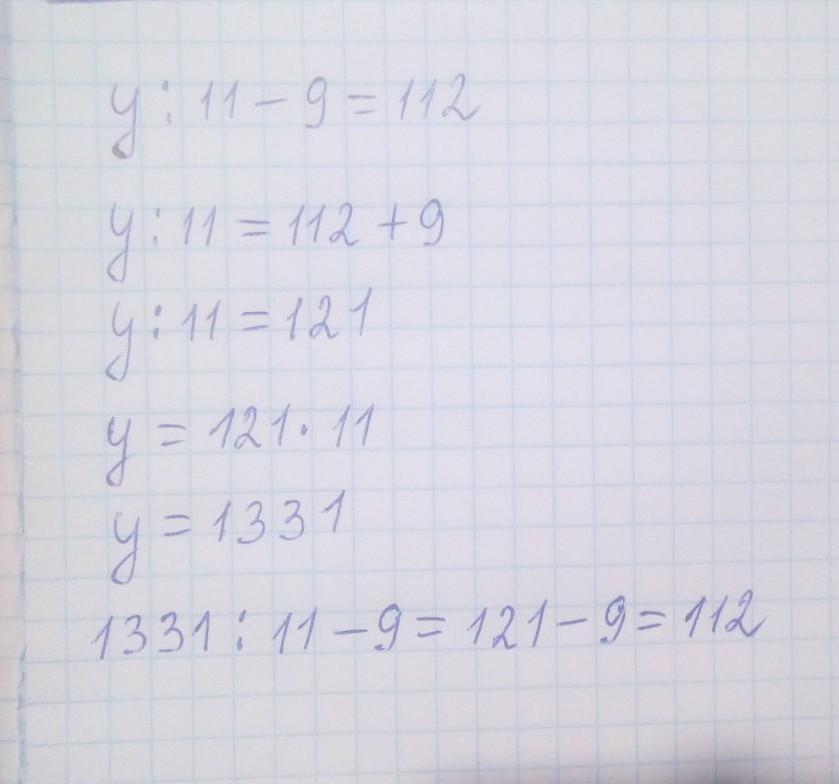 y : 11 - 9 = 112
y : 11 = 112 + 9
y : 11 = 121
y = 121 · 11
y = 1331
1331 : 11 - 9 = 121 - 9 = 112